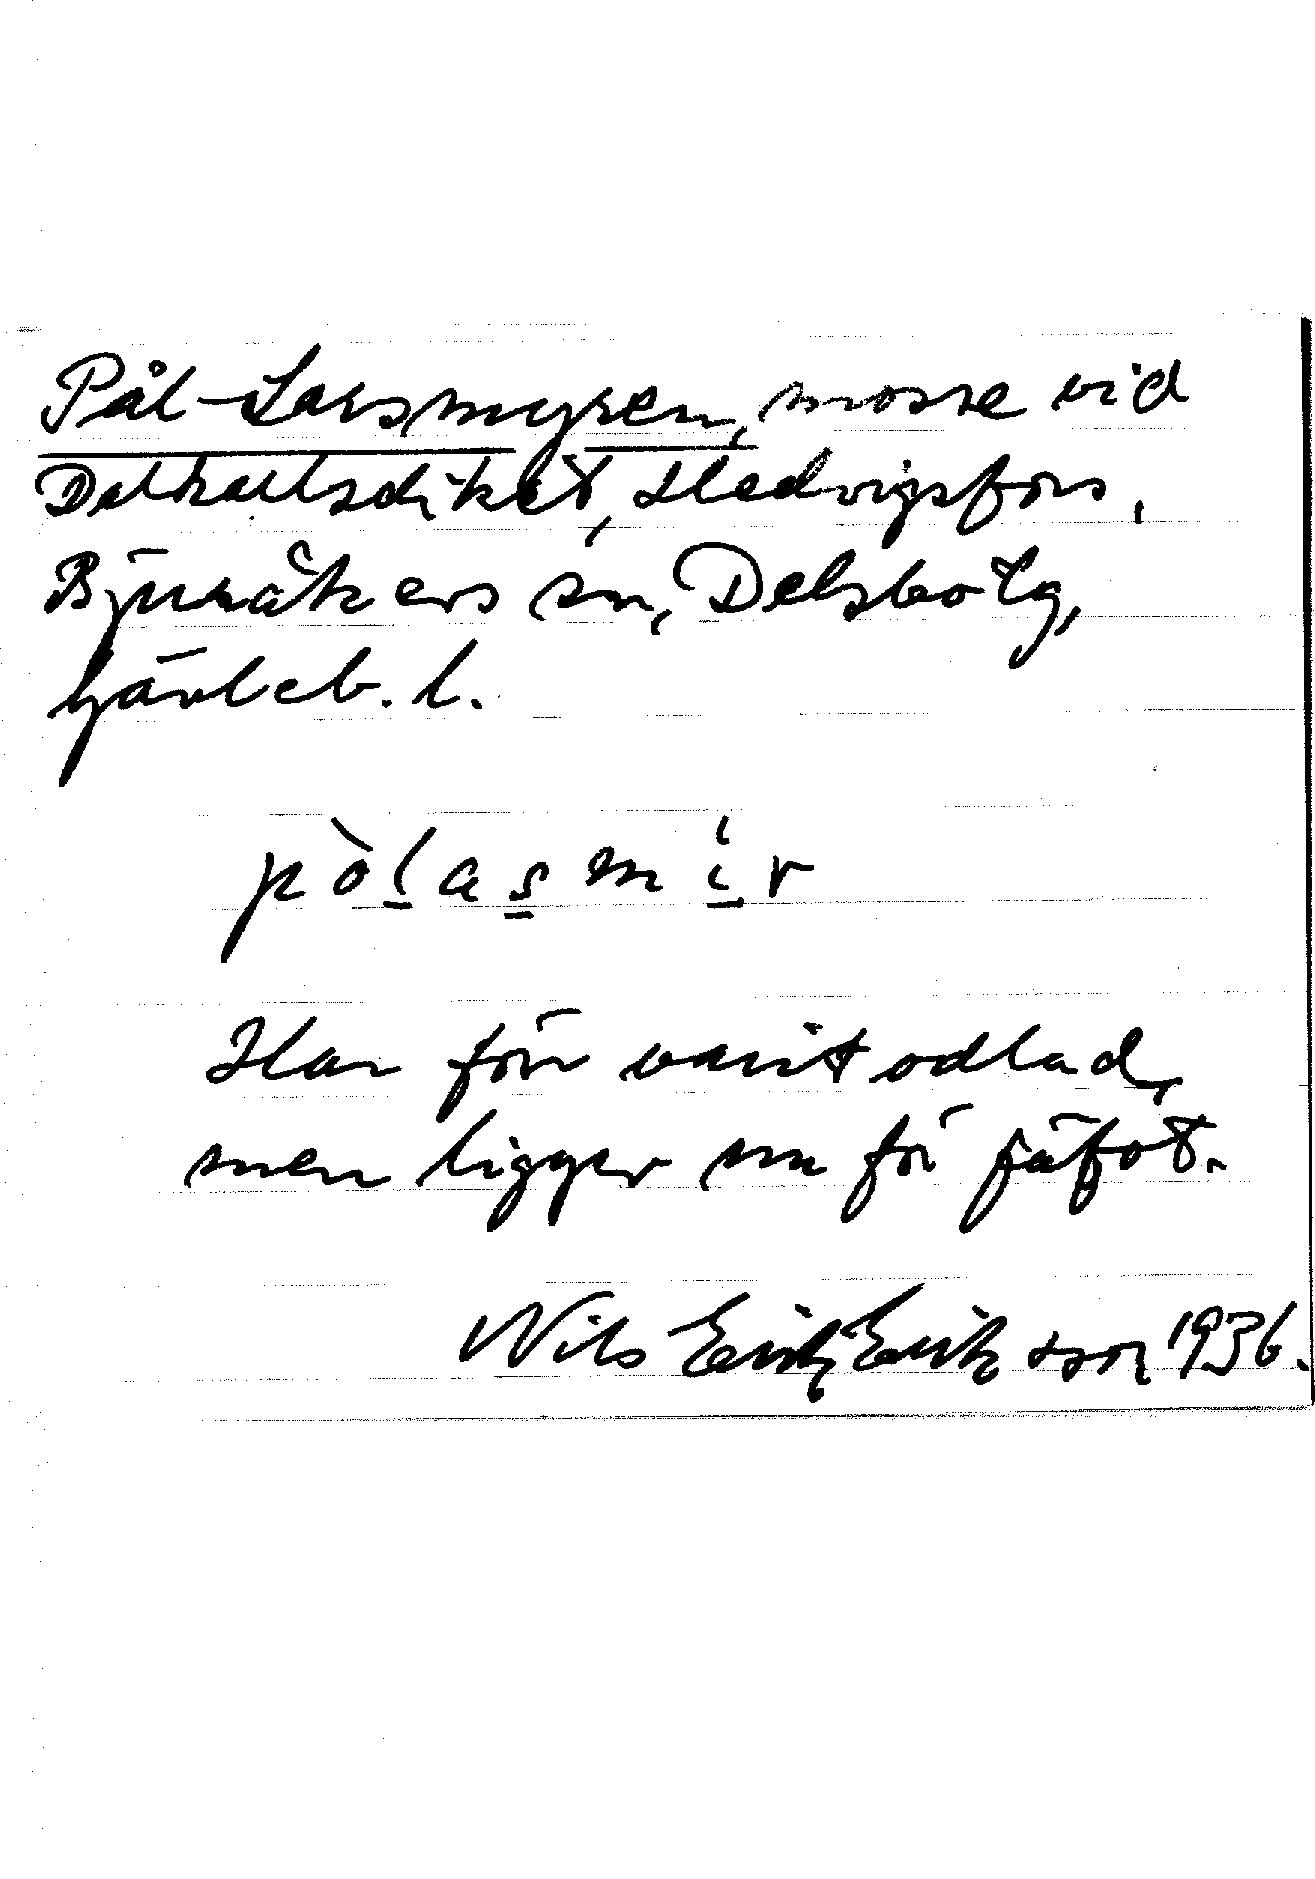 Pål-Larsmyren, mosse vid
Hedvigsfors,
Bjuråkers sn, Delsbo tg,
Gävleb. l.
pòlasmir
Har förr varit odlad,
men ligger nu för fäfot.
Nils Erik Eriksson 1936.